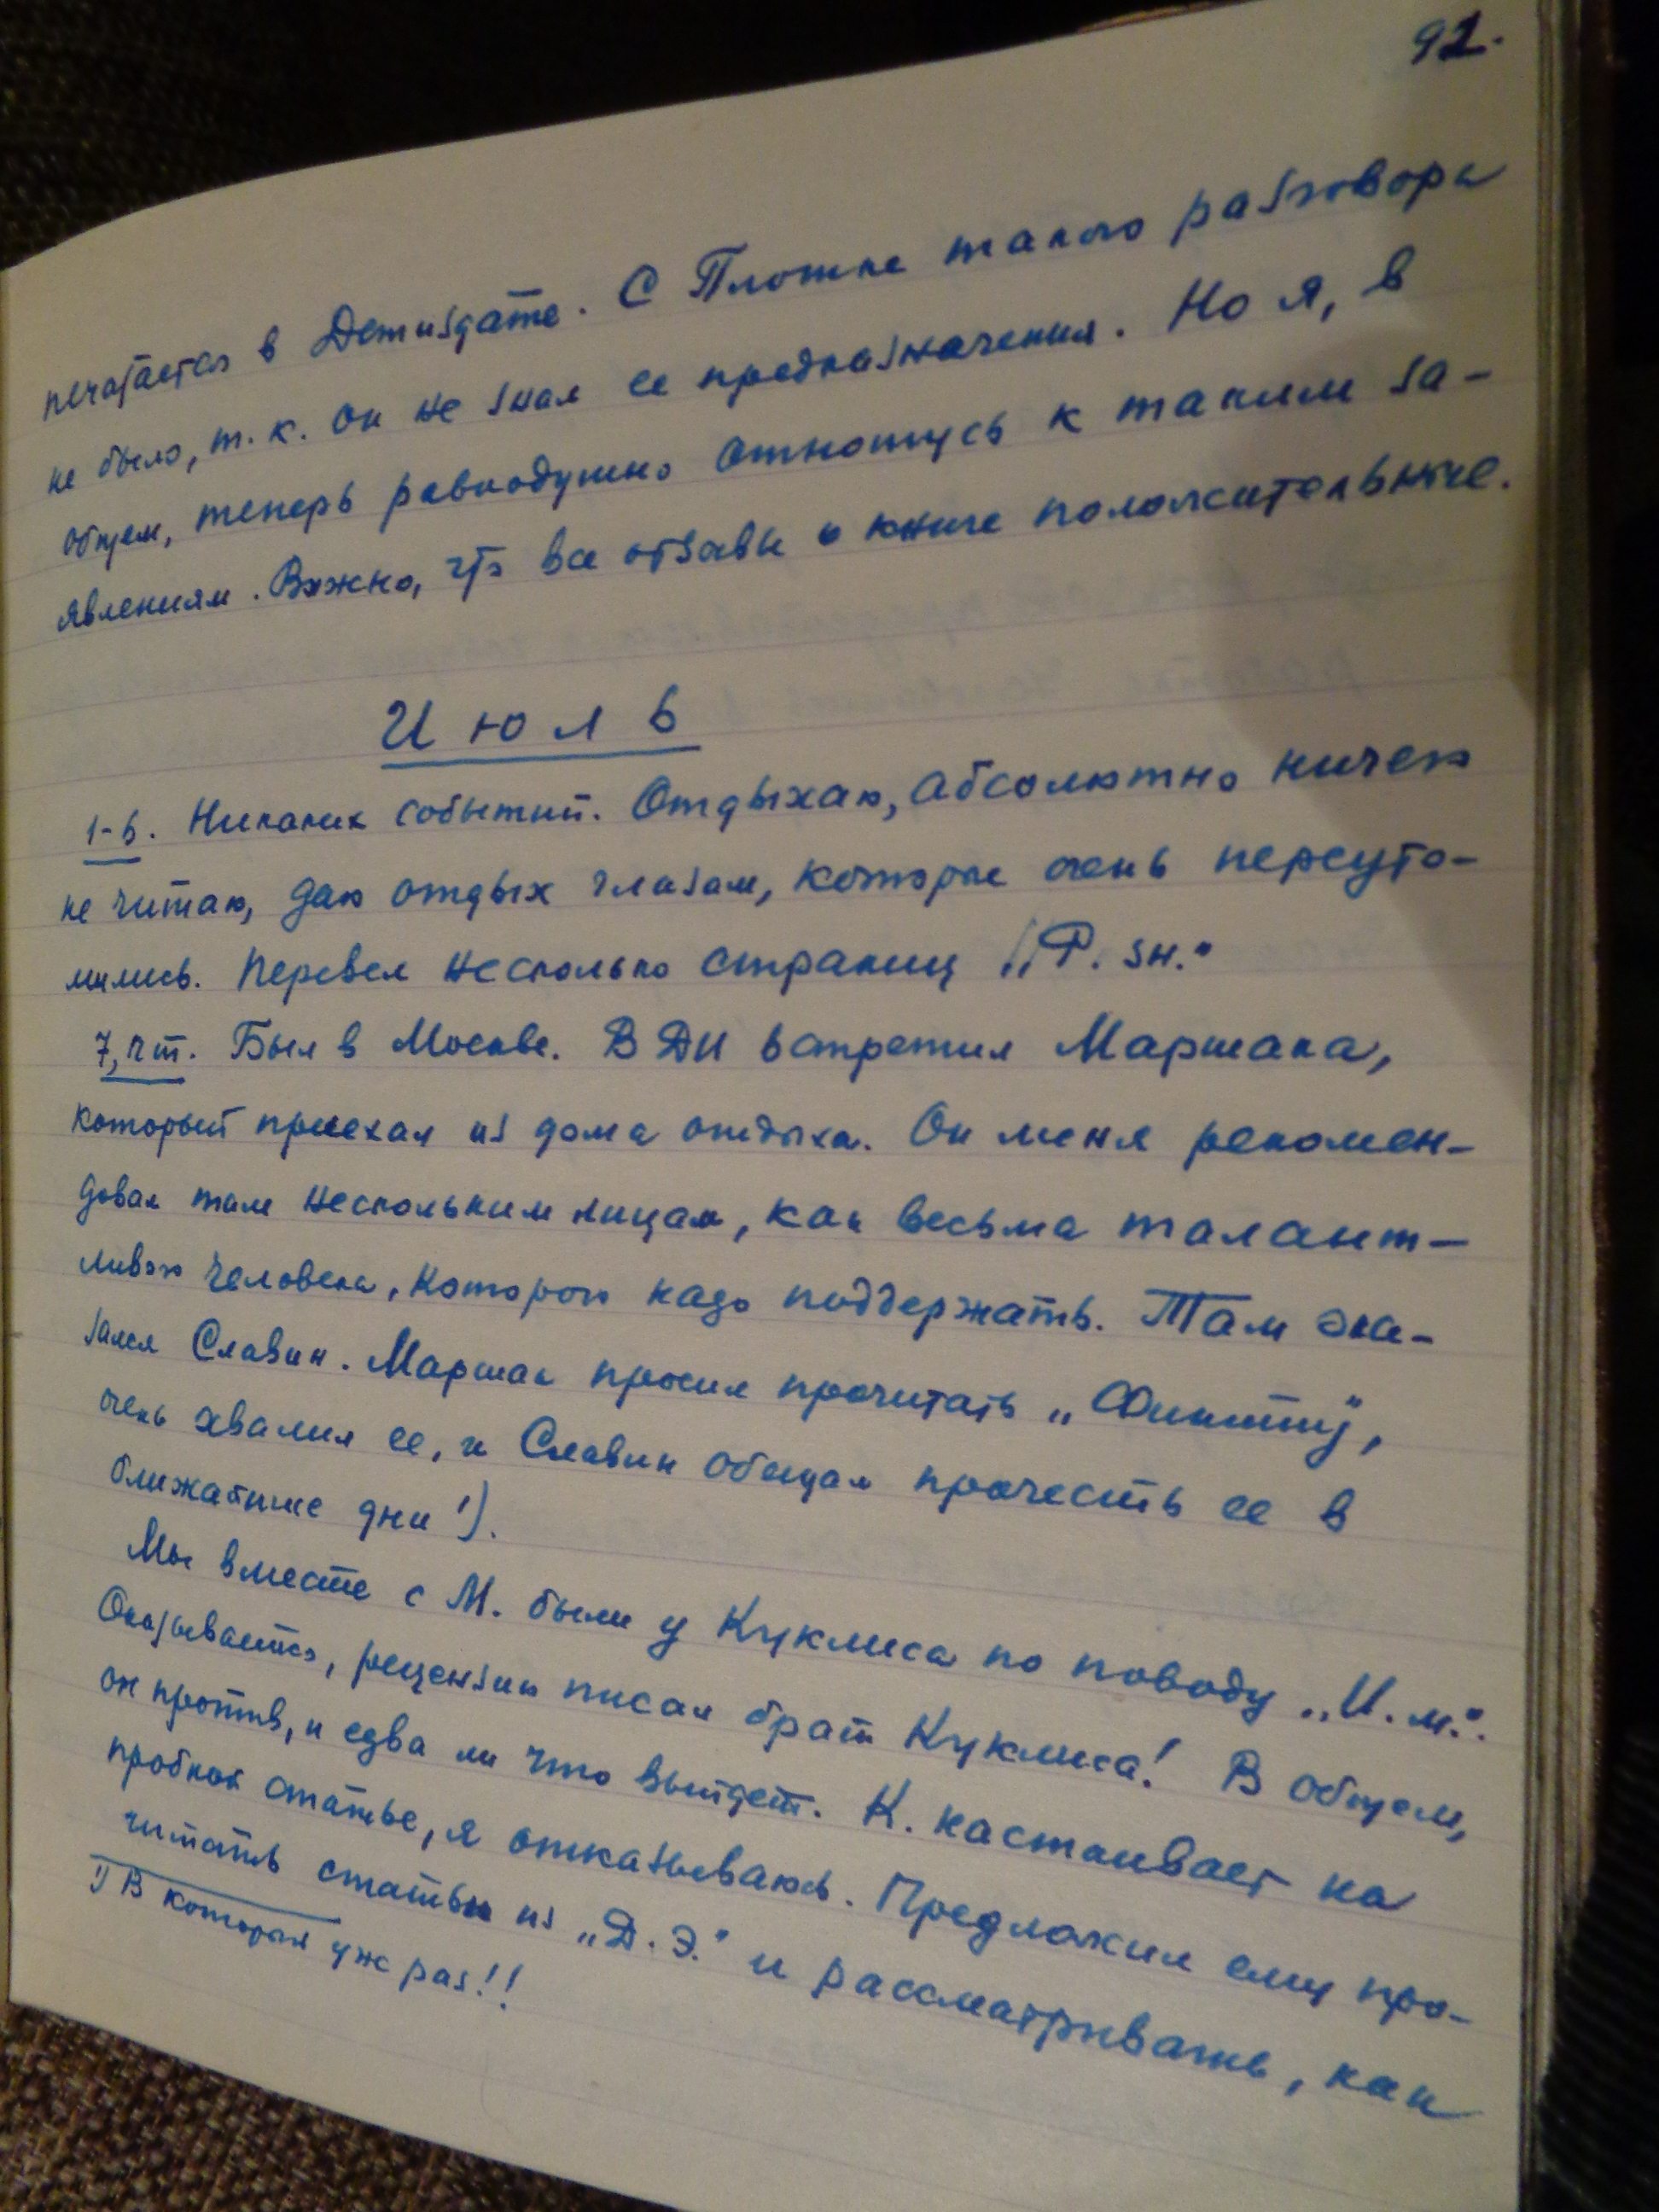 92.
печатается в Детиздате. С Плотке такого разговора
не было, т. к. он не знал ее предназначения. Но я, в
общем, теперь равнодушно отношусь к таким за-
явлениям. Важно, что все отзывы о книге положительные.
Июль
1-6. Никаких событий. Отдыхаю, абсолютно ничего
не читаю, даю отдых глазам, которые очень переуто-
мились. Перевел несколько страниц „Р. зн."
7, чт. Был в Москве. В ДИ встретил Маршака,
который приехал из дома отдыха. Он меня рекомен-
довал там нескольким лицам, как весьма талант-
ливого человека, которого надо поддержать. Там ока-
зался Славин. Маршак просил прочитать „Финиту",
очень хвалил ее, и Славин обещал прочесть ее в
ближайшие дни ¹).
Мы вместе с М. были у Куклиса по поводу „И. м.".
Оказывается, рецензию писал брат Куклиса! В общем,
он против, и едва ли что выйдет. К. настаивает на
пробной статье, я отказываюсь. Предложил ему про-
читать статьи из „Д. Э." и рассматривать, как
¹) В который уже раз!!